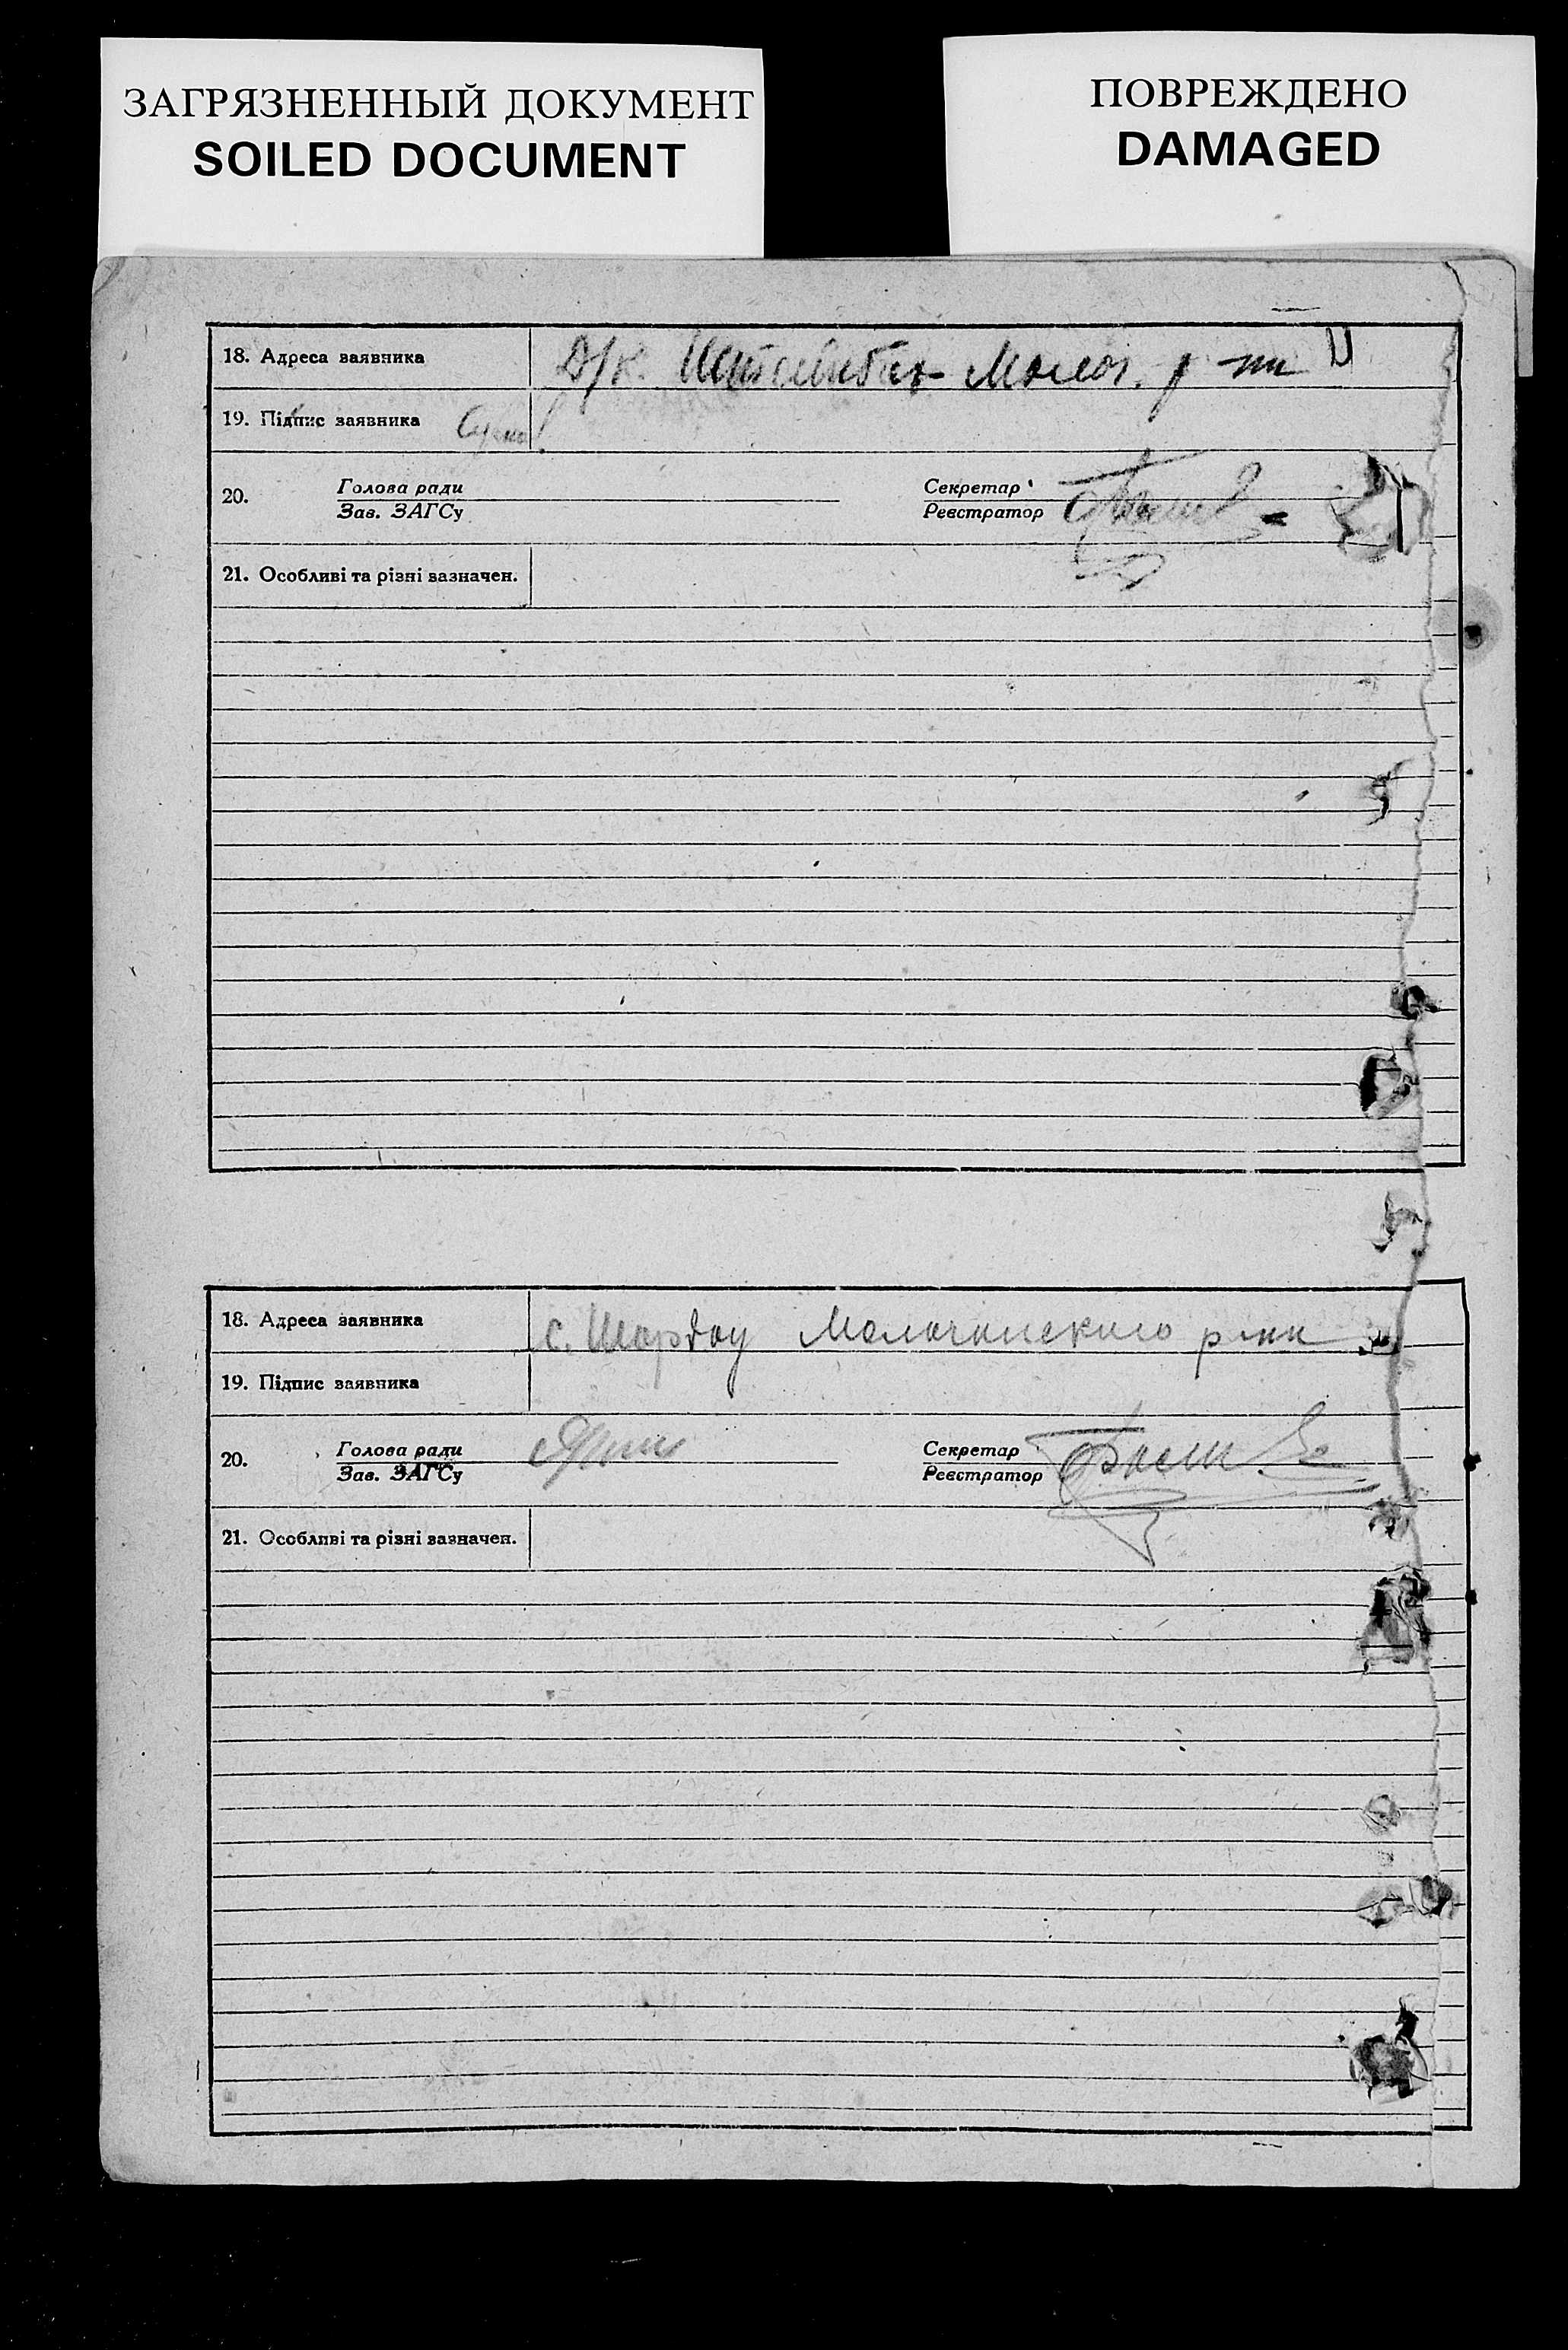 ЗАГРЯЗНЕННЫЙ ДОКУМЕНТ
SOILED DOCUMENT
ПОВРЕЖДЕНО
DAMAGED
18. Адреса заявника Д/к. Молоч. р-на
19. Підпис заявника
20. Голова ради
Зав. ЗАГСу
Секретар
Реєстратор
21. Особливі та різні зазначен.
18. Адреса заявника с. Шардау Молочанского р-на
19. Підпис заявника
20. Голова ради
Зав. ЗАГСу
Секретар
Реєстратор
21. Особливі та різні зазначен.